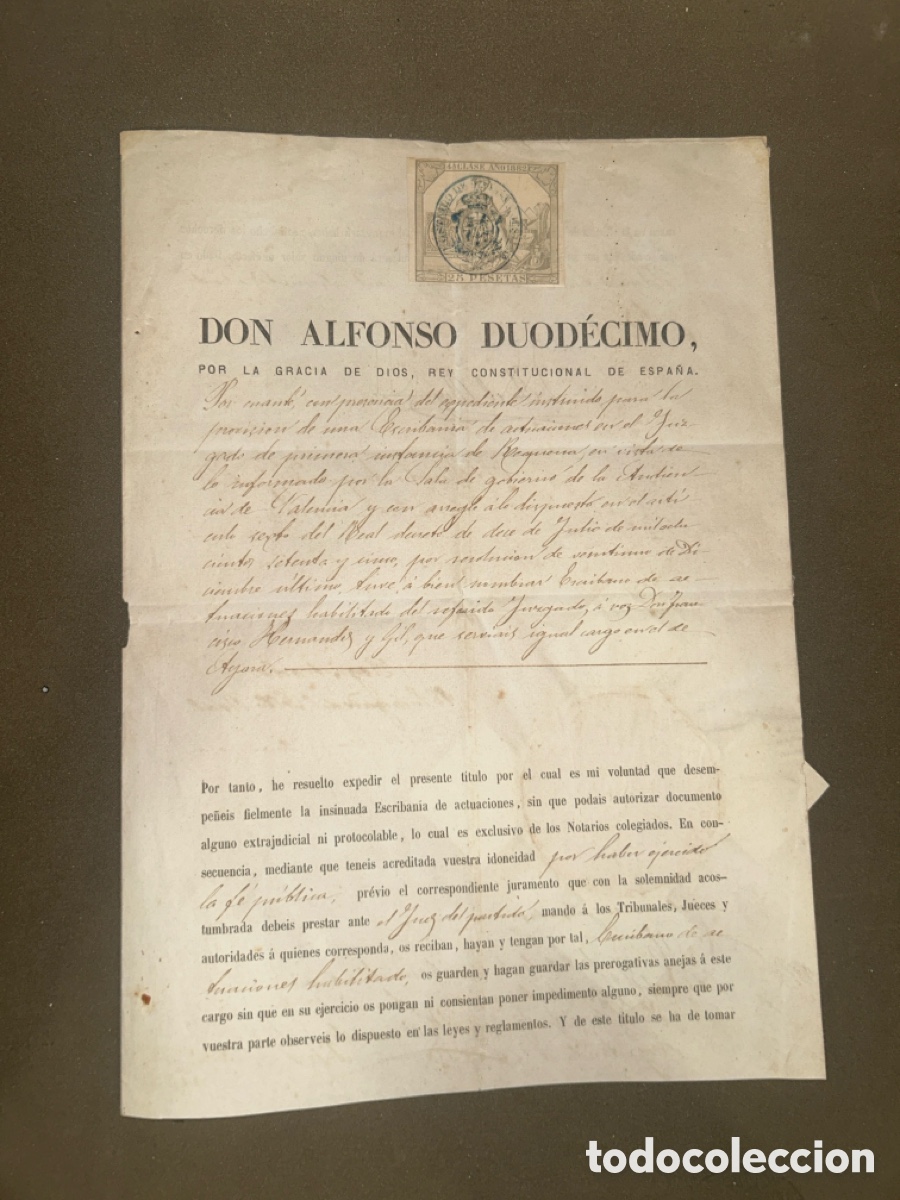 4ª CLASE AÑO 1882
25 PESETAS
DON ALFONSO DUODÉCIMO,
POR LA GRACIA DE DIOS, REY CONSTITUCIONAL DE ESPAÑA.
Por cuanto, con presencia del expediente instruido para la
provision de una Escribania de actuaciones en el Juz-
gado de primera instancia de Requena, en vista de
lo informado por la Sala de gobierno de la Audien-
cia de Valencia y con arreglo á lo dispuesto en el artí-
culo sexto del Real decreto de doce de Julio de mil ocho
cientos setenta y cinco, por resolucion de veintiuno de Di-
ciembre último, tuve á bien nombrar Escribano de ac-
tuaciones habilitado del referido Juzgado, á vos Don Fran-
cisco Hernandez y Gil, que serviais igual cargo en el de
Ayora.
Por tanto, he resuelto expedir el presente título por el cual es mi voluntad que desem-
peñeis fielmente la insinuada Escribanía de actuaciones, sin que podais autorizar documento
alguno extrajudicial ni protocolable, lo cual es exclusivo de los Notarios colegiados. En con-
secuencia, mediante que teneis acreditada vuestra idoneidad por haber ejercido
la fé pública, prévio el correspondiente juramento que con la solemnidad acos-
tumbrada debeis prestar ante el Juez del partido, mando á los Tribunales, Jueces y
autoridades á quienes corresponda, os reciban, hayan y tengan por tal, Escribano de ac
tuaciones habilitado, os guarden y hagan guardar las prerogativas anejas á este
cargo sin que en su ejercicio os pongan ni consientan poner impedimento alguno, siempre que por
vuestra parte observeis lo dispuesto en las leyes y reglamentos. Y de este título se ha de tomar
todocoleccion